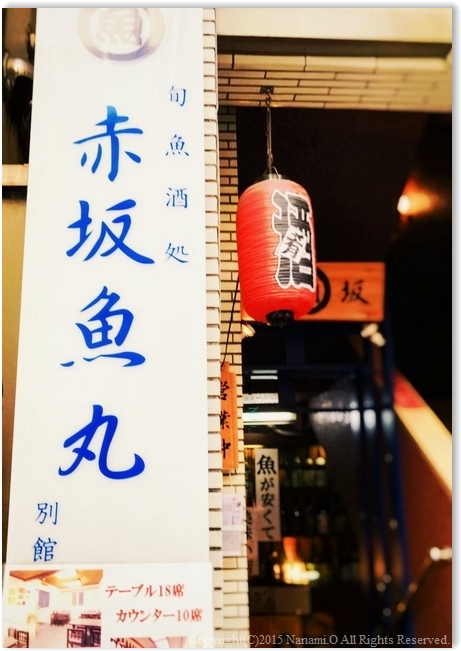 魚
旬魚酒処
赤坂魚丸
別館
テーブル18席
カウンター10席
坂
営業中
魚が安くて
Copyright(C)2015 Nanami.O All Rights Reserved.